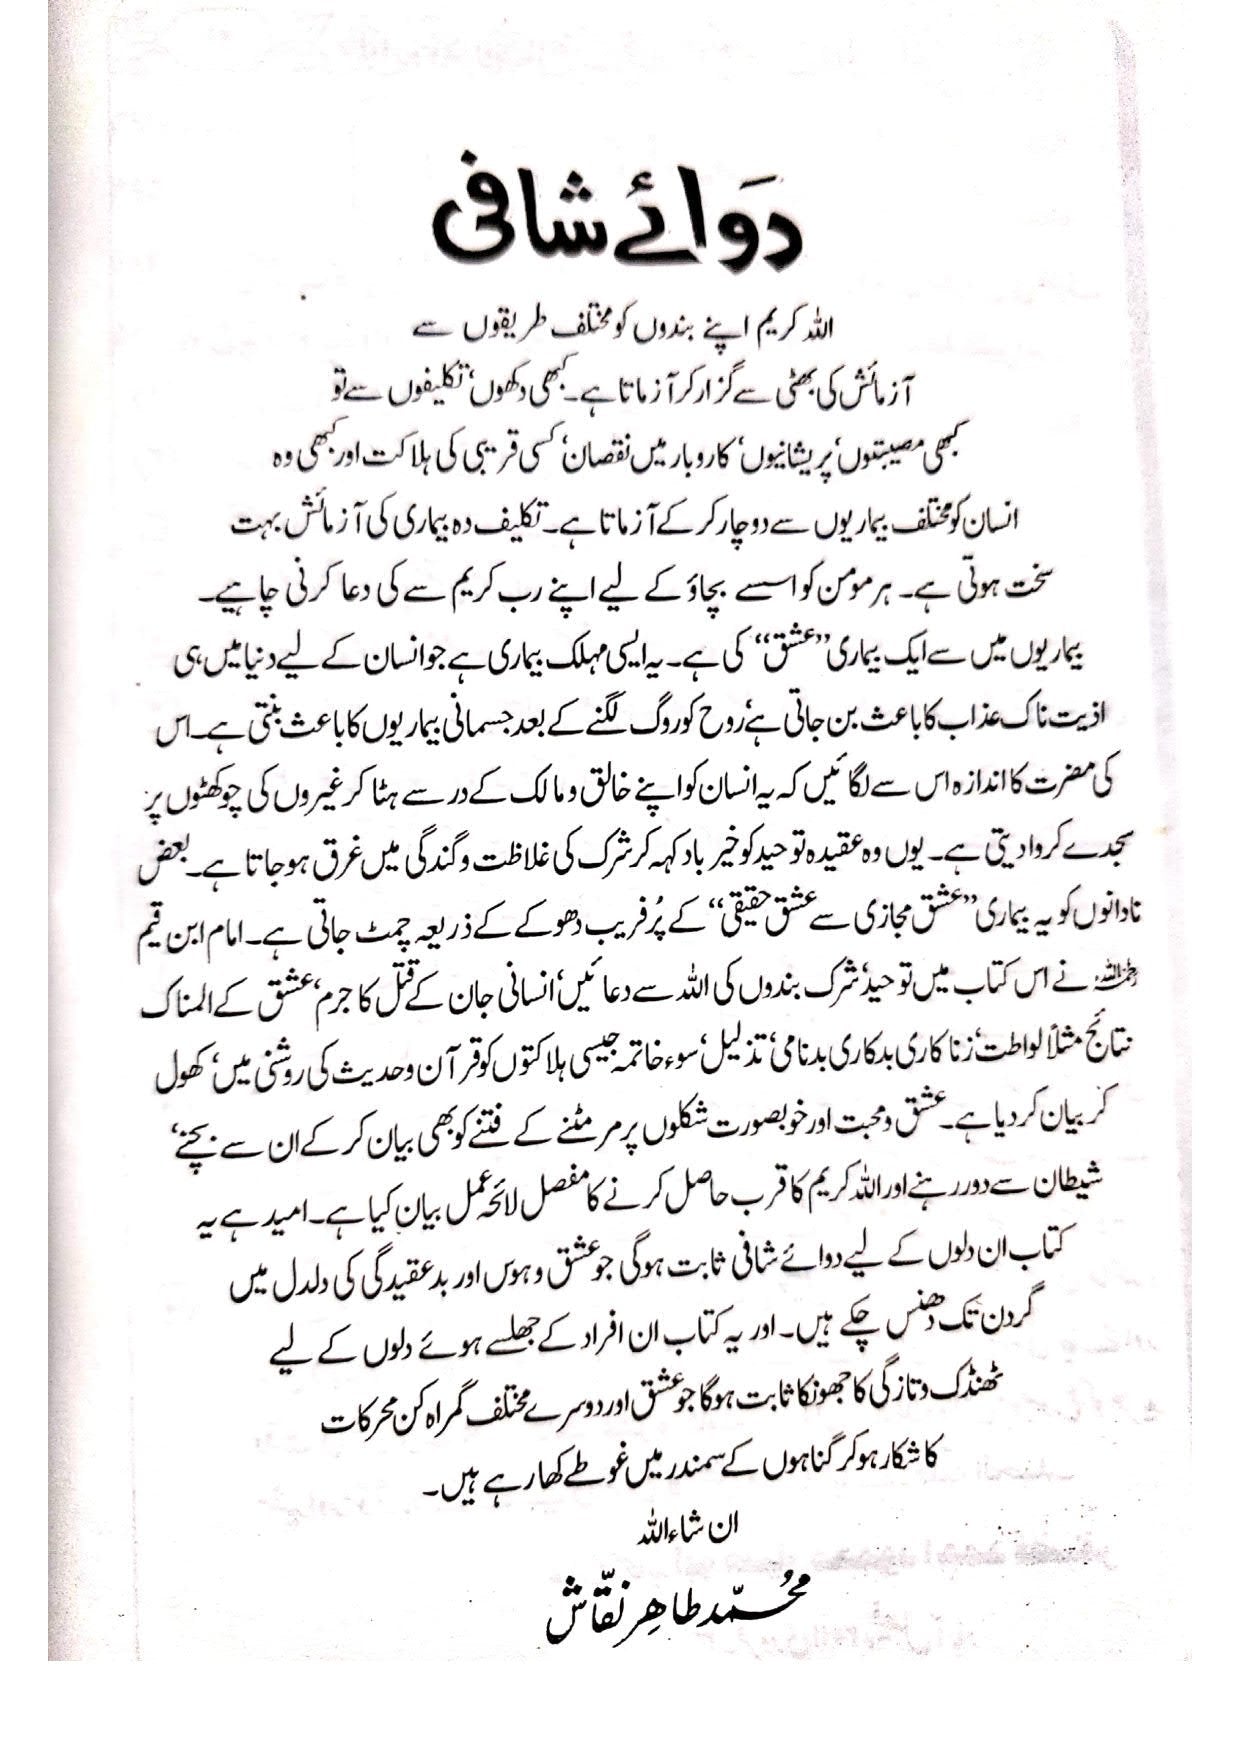 دَوائے شافی
اللہ کریم اپنے بندوں کو مختلف طریقوں سے
آزمائش کی بھٹی سے گزار کر آزماتا ہے۔ کبھی دکھوں‘ تکلیفوں سے تو
کبھی مصیبتوں‘ پریشانیوں‘ کاروبار میں نقصان‘ کسی قریبی کی ہلاکت اور کبھی وہ
انسان کو مختلف بیماریوں سے دوچار کر کے آزماتا ہے۔ تکلیف دہ بیماری کی آزمائش بہت
سخت ہوتی ہے۔ ہر مومن کو اسسے بچاؤ کے لیے اپنے رب کریم سے کی دعا کرنی چاہیے۔
بیماریوں میں سے ایک بیماری ’’عشق‘‘ کی ہے۔ یہ ایسی مہلک بیماری ہے جو انسان کے لیے دنیا میں ہی
اذیت ناک عذاب کا باعث بن جاتی ہے‘ روح کو روگ لگنے کے بعد جسمانی بیماریوں کا باعث بنتی ہے۔ اس
کی مضرت کا اندازہ اس سے لگائیں کہ یہ انسان کو اپنے خالق و مالک کے در سے ہٹا کر غیروں کی چوکھٹوں پر
سجدے کروا دیتی ہے۔ یوں وہ عقیدہ توحید کو خیر باد کہہ کر شرک کی غلاظت و گندگی میں غرق ہو جاتا ہے۔ بعض
نادانوں کو یہ بیماری ’’عشق مجازی سے عشق حقیقی‘‘ کے پُر فریب دھوکے کے ذریعہ چمٹ جاتی ہے۔ امام ابن قیم
رحمہ اللہ نے اس کتاب میں توحید‘ شرک بندوں کی اللہ سے دعائیں‘ انسانی جان کے قتل کا جرم‘ عشق کے المناک
نتائج مثلاً لواطت‘ زنا کاری بدکاری بدنامی‘ تذلیل‘ سوء خاتمہ جیسی ہلاکتوں کو قرآن و حدیث کی روشنی میں‘ کھول
کر بیان کر دیا ہے۔ عشق و محبت اور خوبصورت شکلوں پر مر مٹنے کے فتنے کو بھی بیان کر کے ان سے بچنے‘
شیطان سے دور رہنے اور اللہ کریم کا قرب حاصل کرنے کا مفصل لائحہ عمل بیان کیا ہے۔ امید ہے یہ
کتاب ان دلوں کے لیے دوائے شافی ثابت ہوگی جو عشق و ہوس اور بد عقیدگی کی دلدل میں
گردن تک دھنس چکے ہیں۔ اور یہ کتاب ان افراد کے جھلسے ہوئے دلوں کے لیے
ٹھنڈک و تازگی کا جھونکا ثابت ہوگا جو عشق اور دوسرے مختلف گمراہ کن محرکات
کا شکار ہو کر گناہوں کے سمندر میں غوطے کھا رہے ہیں۔
ان شاء اللہ
محمّد طاہِر نقّاش